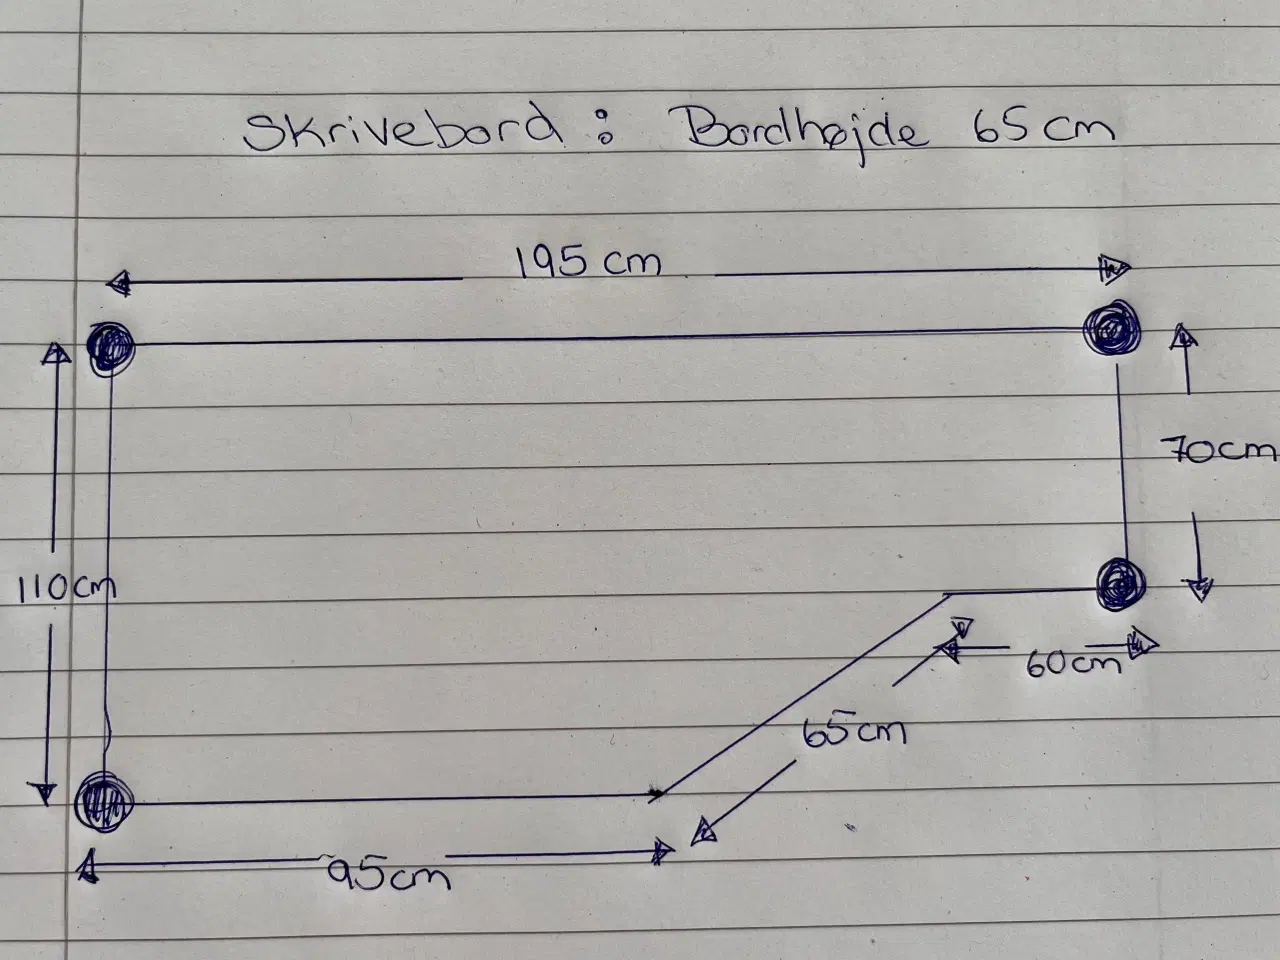 Skrivebord: Bordhøjde 65 cm
195 cm
70cm
110cm
60cm
65cm
95cm